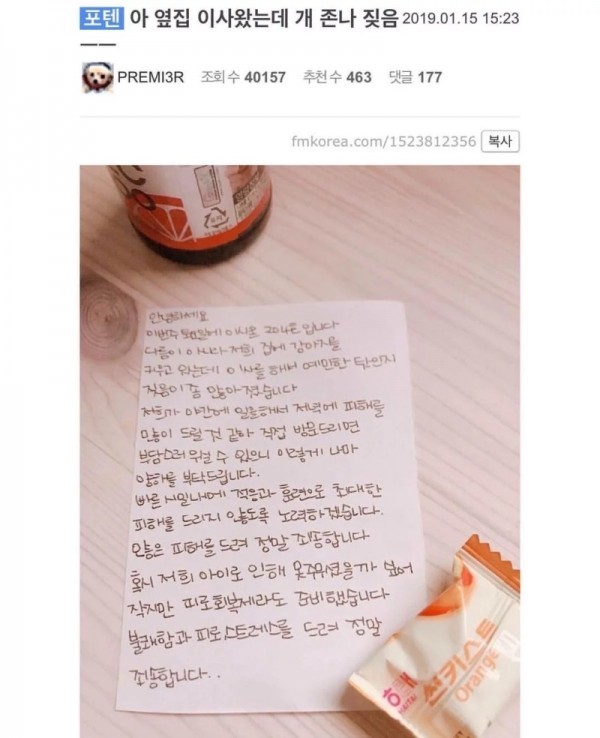 포텐 아 옆집 이사왔는데 개 존나 짖음 2019.01.15 15:23
ㅡㅡ
PREMI3R 조회 수 40157 추천 수 463 댓글 177
fmkorea.com/1523812356 복사
안녕하세요
이번주 토요일에 이사온 204호 입니다
다름이 아니라 저희 집에 강아지를
키우고 있는데 이사를 해서 예민한 탓인지
짖음이 좀 많아 졌습니다
저희가 야간에 일을해서 저녁에 피해를
많이 드릴 것 같아 직접 방문드리면
부담스러워 할 수 있으니 이렇게 나마
양해를 부탁드립니다.
빠른 시일내에 적응과 훈련으로 최대한
피해를 드리지 않도록 노력하겠습니다.
오늘은 피해를 드려 정말 죄송합니다
혹시 저희 아이로 인해 못주무셨을까 싶어
작지만 피로회복제라도 준비했습니다
불쾌함과 피로, 스트레스를 드려 정말
죄송합니다..
해태
HAITAI
썬키스트
Orange